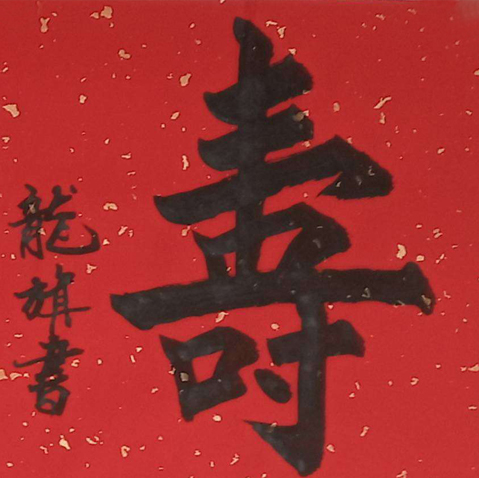 壽
龍旗書